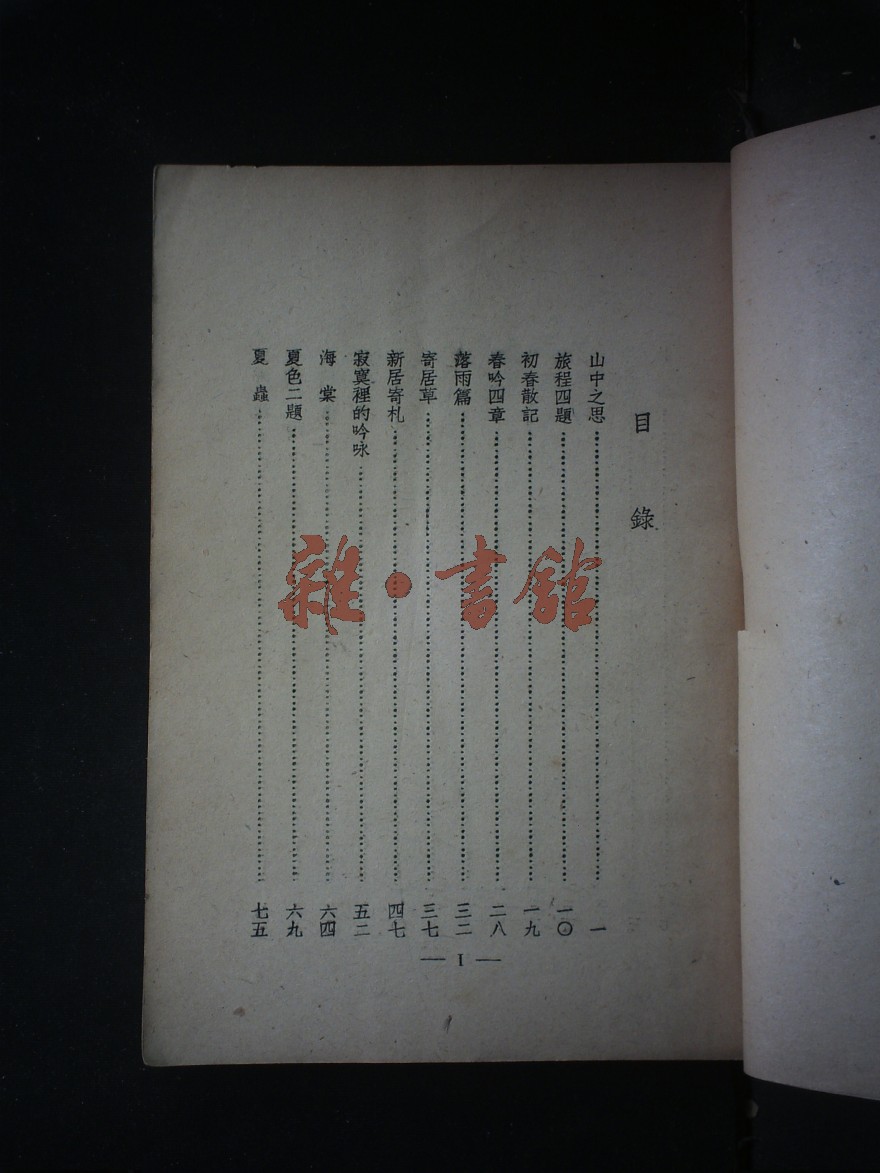 目錄
山中之思 一
旅程四題 一〇
初春散記 一九
春吟四章 二八
落雨篇 三二
寄居草 三七
新居寄札 四七
寂寞裡的吟咏 五二
海棠 六四
夏色二題 六九
夏蟲 七五
— I —
雜·書館